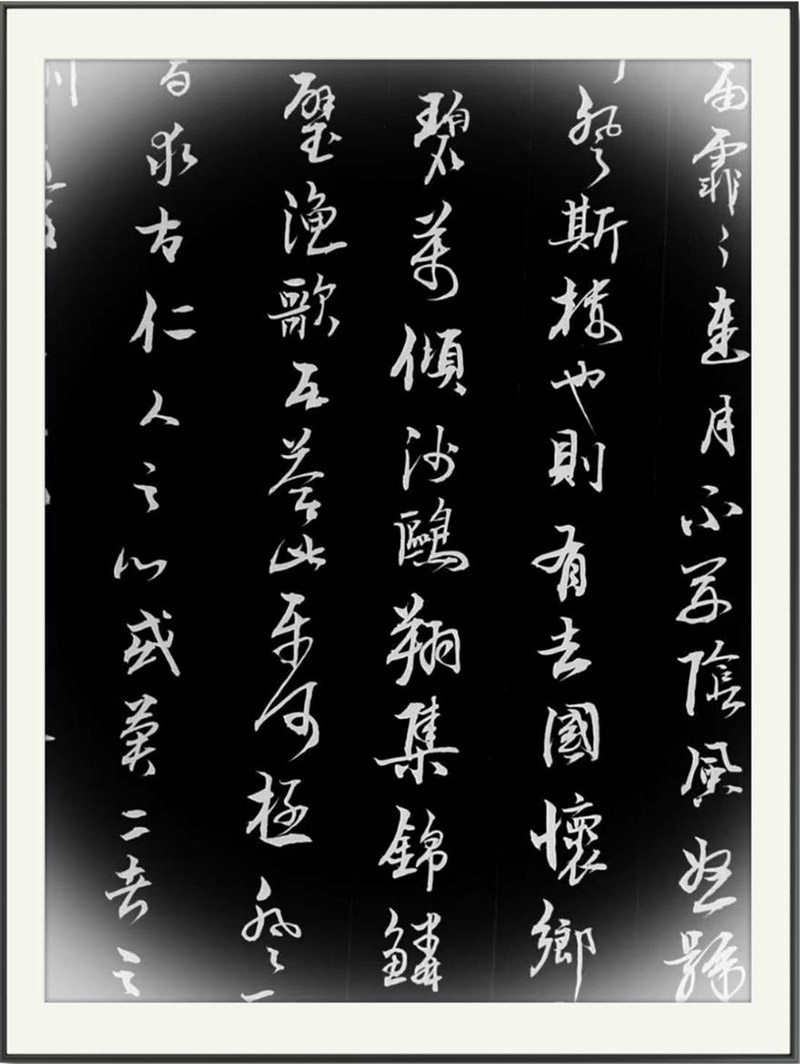 雨霏〻連月不開陰風怒號
登斯樓也則有去國懷鄉
碧萬傾沙鷗翔集錦鱗
璧漁歌互答此樂何極登
求古仁人之心或異二者之